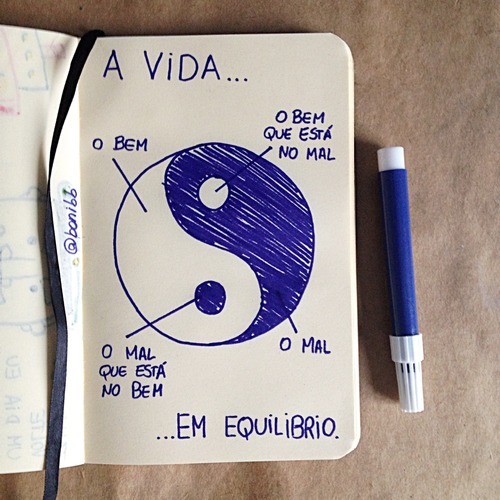 A ViDA...
O BEM
O BEM
QUE ESTÁ
NO MAL
@boni66
O MAL
QUE ESTÁ
NO BEM
O MAL
...EM EQUiLiBRiO.
UM DIA EU
VOLTE